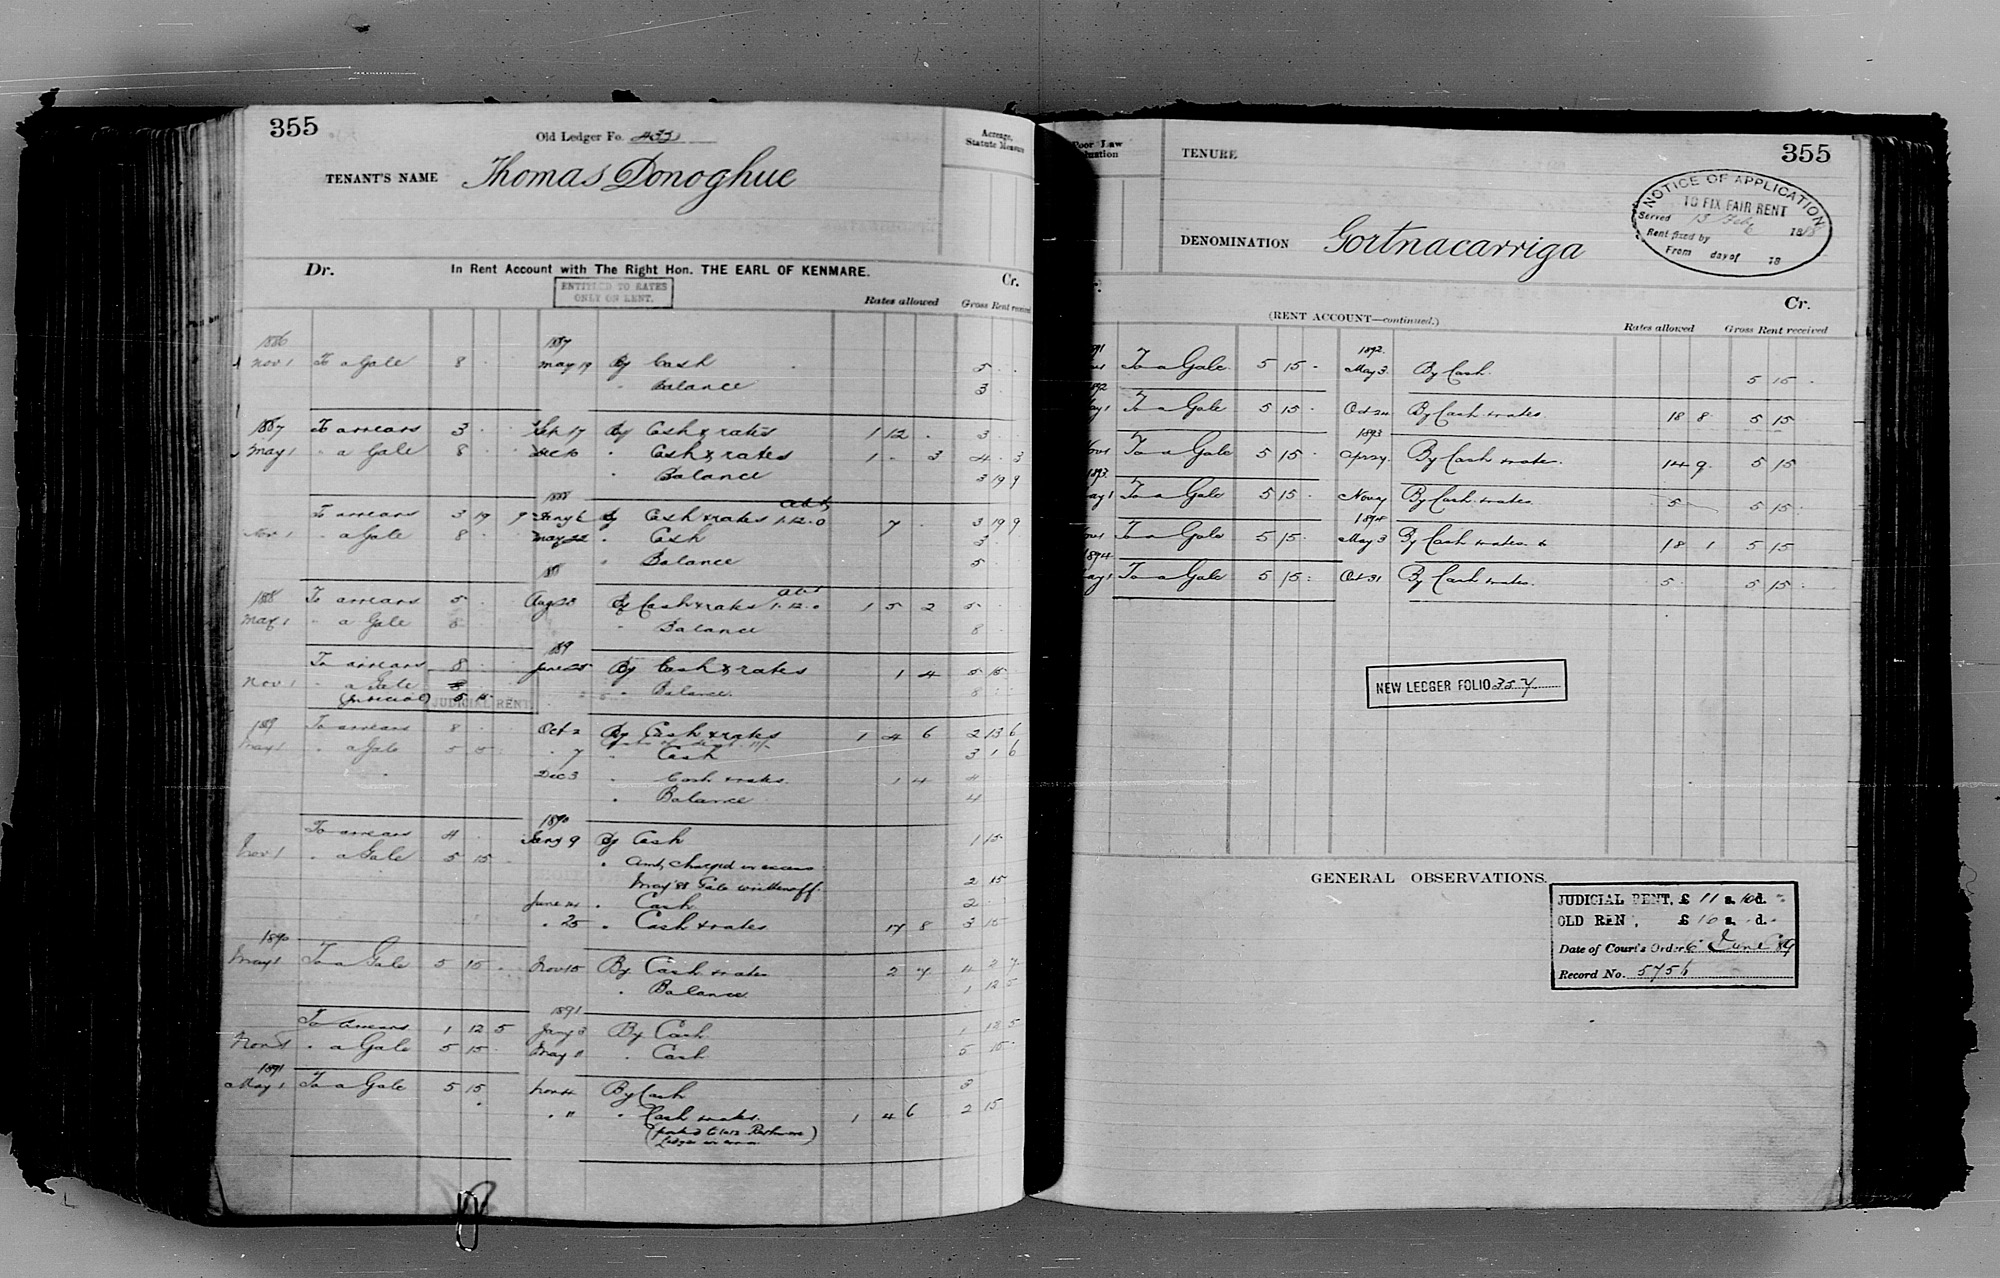 355
Old Ledger Fo.
Acreage, Statute Measure
TENANT'S NAME Thomas Donoghue
Dr. In Rent Account with The Right Hon. THE EARL OF KENMARE. Cr.
ENTITLED TO RATES
ONLY ON RENT.
Rates allowed Gross Rent received
1886 1887
Nov 1 To a Gale 8 . . May 19 By Cash 5 . .
" Balance 3 . .
1887 To arrears 3 . . Sep 17 By Cash & rates 1 12 . 3 . .
May 1 " a Gale 8 . . Dec 10 " Cash & rates 1 - 3 4 . 3
" Balance 3 19 9
1888
To arrears 3 19 9 Jany 6 By Cash & rates 1.12.0 7 . 3 19 9
Nov 1 " a Gale 8 . . May 22 " Cash 3 . .
" Balance 5 . .
1888 To arrears 5 . . Aug 23 By Cash & rates 1.12.0 1 5 2 5 . .
May 1 " a Gale 8 . . " Balance 8 . .
1889
To arrears 8 . . June 25 By Cash & rates 1 4 5 15
Nov 1 " a Gale 8 " Balance 8 . .
(Judicial) 5 15 JUDICIAL RENT
1889 To arrears 8 . . Oct 2 By Cash & rates 1 4 6 2 13 6
May 1 " a Gale 5 15 " 7 " Cash 3 1 6
Dec 3 " Cash & rates 1 4 4
" Balance 4
1890
To arrears 4 . Jany 9 By Cash 1 15
Nov 1 " a Gale 5 15 " Amt, charged in excess
May '88 Gale written off. 2 15
June 14 " Cash 2 .
" 25 " Cash & rates 17 8 3 15
1890
May 1 To a Gale 5 15 . Nov 15 By Cash & rates 2 7 4 2 7
" Balance 1 12 5
1891
To Arrears 1 12 5 Jany 3 By Cash 1 12 5
Nov 1 " a Gale 5 15 May 11 " Cash 5 15
1891
May 1 To a Gale 5 15 Nov 4 By Cash 3
" " " Cash & rates. 1 4 6 2 15
(posted to
Ledger in error
Poor Law
Valuation
TENURE 355
NOTICE OF APPLICATION
TO FIX FAIR RENT
Served 13 Feby 1888
Rent fixed by
From day of 18
DENOMINATION Gortnacarriga
Cr.
(RENT ACCOUNT—continued.)
Rates allowed Gross Rent received
1891 1892
Nov 1 To a Gale 5 15 - May 3 By Cash. 5 15 -
1892
May 1 To a Gale 5 15 . Oct 24 By Cash & rates. 18 8 5 15
1893
Nov 1 To a Gale 5 15 . Apr 24 By Cash & rates. 14 9 5 15
1893
May 1 To a Gale 5 15 . Nov 7 By Cash & rates 5 - 5 15 .
1894
Nov 1 To a Gale 5 15 . May 3 By Cash & rates 18 1 5 15
1894
May 1 To a Gale 5 15 . Oct 31 By Cash & rates. 5 . 5 15 .
NEW LEDGER FOLIO 357
GENERAL OBSERVATIONS.
JUDICIAL RENT, £ 11 s. 10 d. "
OLD RENT, £ 16 s. . d. .
Date of Court's Order 6 June '89
Record No. 5756